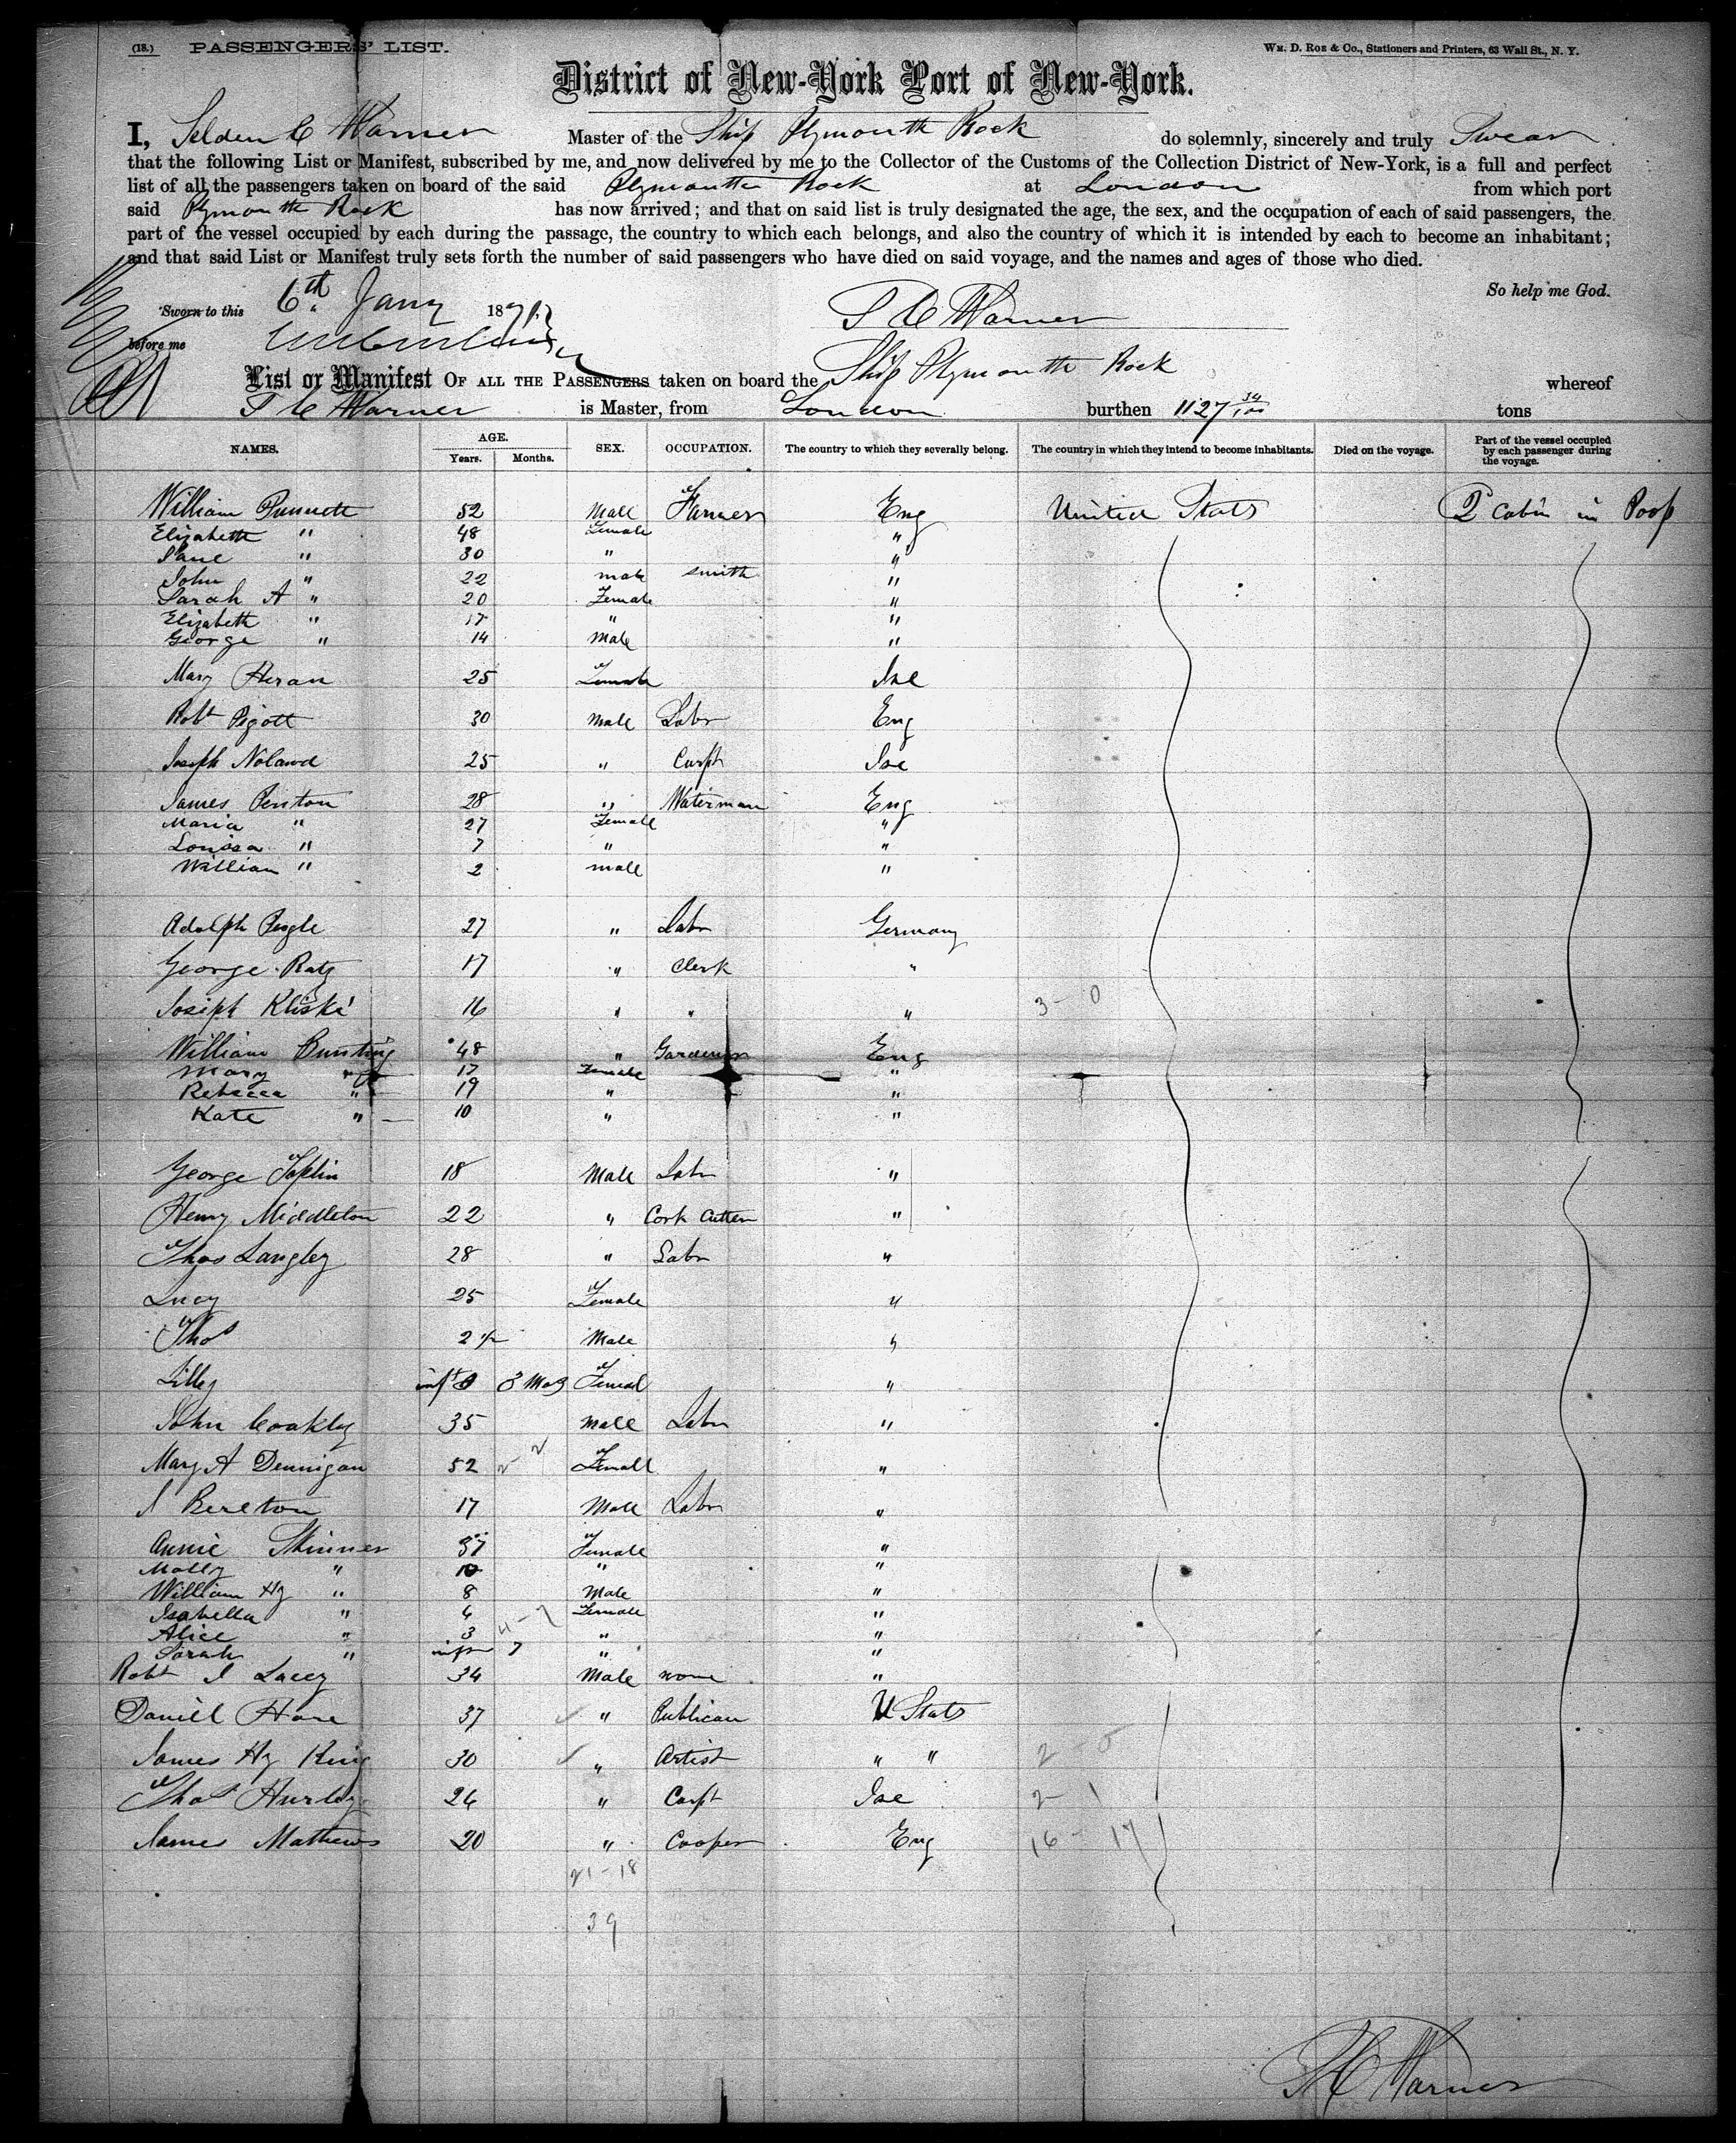 (18.) PASSENGERS' LIST. Wm. D. Roe & Co., Stationers and Printers, 63 Wall St., N. Y.
District of New-York Port of New-York.
I, Selden C Warner Master of the Ship Plymouth Rock do solemnly, sincerely and truly Swear
that the following List or Manifest, subscribed by me, and now delivered by me to the Collector of the Customs of the Collection District of New-York, is a full and perfect
list of all the passengers taken on board of the said Plymouth Rock at London from which port
said Plymouth Rock has now arrived; and that on said list is truly designated the age, the sex, and the occupation of each of said passengers, the
part of the vessel occupied by each during the passage, the country to which each belongs, and also the country of which it is intended by each to become an inhabitant;
and that said List or Manifest truly sets forth the number of said passengers who have died on said voyage, and the names and ages of those who died.
So help me God.
Sworn to this 6th Jany 1871 S C Warner
before me
List or Manifest OF ALL THE PASSENGERS taken on board the Ship Plymouth Rock whereof
S C Warner is Master, from London burthen 1127 34/100 tons
NAMES. AGE. Years. Months. SEX. OCCUPATION. The country to which they severally belong. The country in which they intend to become inhabitants. Died on the voyage. Part of the vessel occupied by each passenger during the voyage.
William Punnett 52 Male Farmer Eng United States 2 Cabin in Poop
Elizabeth " 48 Female "
Jane " 30 " "
John " 22 male smith "
Sarah A " 20 Female "
Elizabeth " 17 " "
George " 14 Male "
Mary Heran 25 Female Ire
Robt Pigott 30 Male Labr Eng
Joseph Noland 25 " Carpt Ire
James Penton 28 " Waterman Eng
Maria " 27 Female "
Louisa " 7 " "
William " 2 male "
Adolph 27 " Labr Germany
George Ratz 17 " Clerk "
Joseph Kliske 16 " " " 3 - 0
William Bunting 48 " Gardener Eng
Mary " 17 Female "
Rebecca " 19 " "
Kate " 10 " "
George Joplin 18 Male Labr "
Henry Middleton 22 " Cork Cutter "
Thos Langley 28 " Labr "
Lucy 25 Female "
Thos 2 1/2 Male "
Lilly inft 3 Mos Female "
John Coakley 35 Male Labr "
Mary A Dennigan 52 Female "
J Berlton 17 Male Labr "
Annie Skinner 37 Female "
Molly " 10 " "
William Hy " 8 Male "
Isabella " 6 Female "
Alice " 3 " "
Sarah " infn 7 " "
Robt J Lacey 34 Male none "
Daniel Hare 37 " Publican U States
James Hy King 30 " Artist " " 2 - 0
Thos Hurley 26 " Carpt Ire 2 - 1
James Mathews 20 " Cooper Eng 16 - 17
21 - 18
39
S C Warner